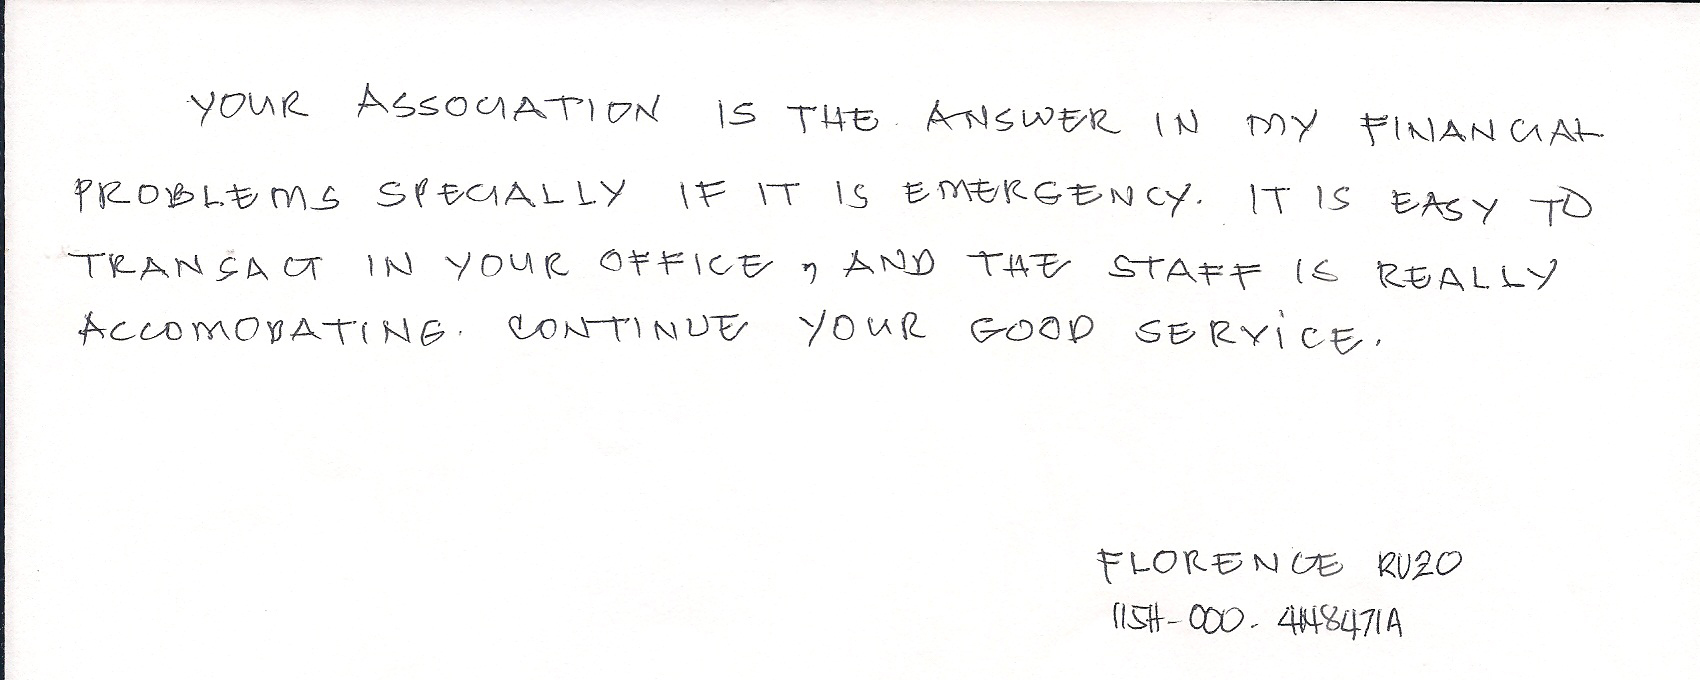 YOUR ASSOCIATION IS THE ANSWER IN MY FINANCIAL
PROBLEMS SPECIALLY IF IT IS EMERGENCY. IT IS EASY TO
TRANSACT IN YOUR OFFICE, AND THE STAFF IS REALLY
ACCOMODATING. CONTINUE YOUR GOOD SERVICE.
FLORENCE RUZO